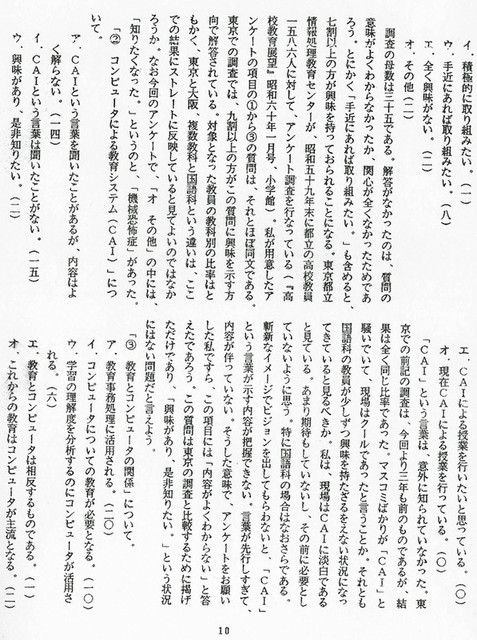 イ、積極的に取り組みたい。（一）
ウ、手近にあれば取り組みたい。（八）
エ、全く興味がない。（二）
オ、その他（二）
調査の母数は三十五である。解答がなかったのは、質問の
意味がよくわからなかったか、関心が全くなかったためであ
ろう。とにかく「手近にあれば取り組みたい。」も含めると、
七割以上の方が興味を持っておられることになる。東京都立
情報処理教育センターが、昭和五十九年末に都立の高校教員
一五八六人に対して、アンケート調査を行なっている（『高
校教育展望』昭和六十年一月号、小学館）。私が用意したア
ンケートの項目の①から③の質問は、それとほぼ同文である。
東京での調査では、九割以上の方がこの質問に興味を示す方
向で解答されている。対象となった教員の教科別の比率はと
もかく、東京と大阪、複数教科と国語科という違いは、ここ
での結果にストレートに反映していると見てよいのではなか
ろうか。なお今回のアンケートで、「オ　その他」の中には、
「知りたくなった。」というのと、「機械恐怖症」があった。
「②　コンピュータによる教育システム（CAI）」につ
いて。
ア、CAIという言葉を聞いたことがあるが、内容はよ
く解らない。（一四）
イ、CAIという言葉は聞いたことがない。（一五）
ウ、興味があり、是非知りたい。（二）
エ、CAIによる授業を行いたいと思っている。（〇）
オ、現在CAIによる授業を行っている。（〇）
「CAI」という言葉は、意外に知られていなかった。東
京での前記の調査は、今回より三年も前のものであるが、結
果は全く同じ比率であった。マスコミばかりが「CAI」と
騒いでいて、現場はクールであったと言うことか。それとも
国語科の教員が少しずつ興味を持たざるをえない状況になっ
てきていると見るべきか。私は、現場はCAIに淡白である
と見ている。あまり期待もしていないし、その前に必要とし
ていないように思う。特に国語科の場合はなおさらである。
斬新なイメージでビジョンを出してもらわないと、「CAI」
という言葉が示す内容が把握できない。言葉が先行しすぎて、
内容が伴っていない。そうした意味で、アンケートをお願い
した私ですら、この項目には「内容がよくわからない」と答
えたであろう。この質問は東京の調査と比較するために掲げ
ただけであり、「興味があり、是非知りたい。」という状況
にはない問題だと言えよう。
「③　教育とコンピュータの関係」について。
ア、教育事務処理に活用される。（二〇）
イ、コンピュータについての教育が必要となる。（一〇）
ウ、学習の理解度を分析するのにコンピュータが活用さ
れる。（六）
エ、教育とコンピュータは相反するものである。（一）
オ、これからの教育はコンピュータが主流となる。（二）
10